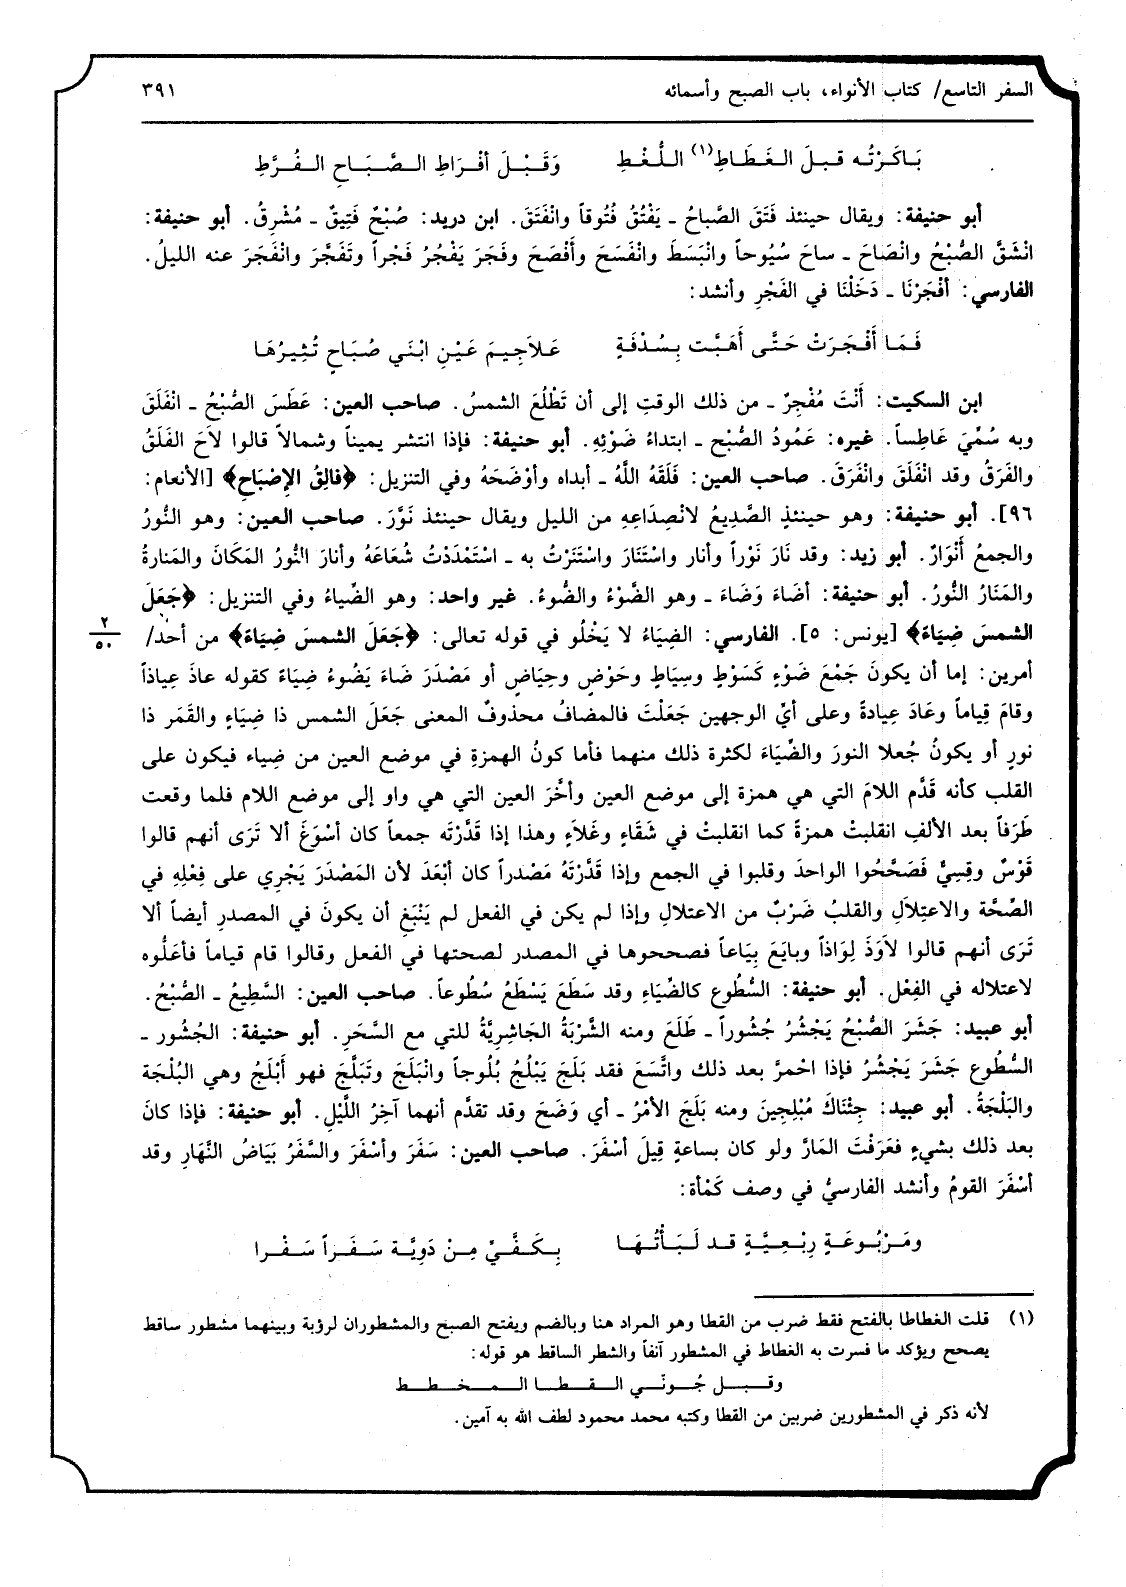 السفر التاسع/ كتاب الأنواء، باب الصبح وأسمائه ٣٩١
بَاكَرْتُه قبلَ الغَطَاطِ(١) اللُّغْطِ وَقَبْلَ أفْرَاطِ الصَّبَاحِ الفُرَّطِ
أبو حنيفة: ويقال حينئذ فَتَقَ الصَّباحُ ـ يَفْتُقُ فُتُوقاً وانْفَتَقَ. ابن دريد: صُبْحٌ فَتِيقٌ ـ مُشْرِقُ. أبو حنيفة:
انْشَقَّ الصُّبْحُ وانْصَاحَ ـ ساحَ سُيُوحاً وانْبَسَطَ وانْفَسَحَ وأَفْصَحَ وفَجَرَ يَفْجُرُ فَجْراً وتَفَجَّرَ وانْفَجَرَ عنه الليلُ.
الفارسي: أفْجَرْنَا ـ دَخَلْنَا في الفَجْرِ وأنشد:
فَمَا أَفْجَرَتْ حَتَّى أَهَبَّت بِسُدْفَةٍ عَلاَجِيمَ عَيْنِ ابْنَي صُبَاحٍ تُثِيرُهَا
ابن السكيت: أَنْتَ مُفْجِرٌ ـ من ذلك الوقتِ إلى أن تَطْلُعَ الشمسُ. صاحب العين: عَطَسَ الصُّبْحُ ـ انْفَلَقَ
وبه سُمِّيَ عَاطِساً. غيره: عَمُودُ الصُّبْح ـ ابتداءُ ضَوْئِهِ. أبو حنيفة: فإذا انتشر يميناً وشمالاً قالوا لاَحَ الفَلَقُ
والفَرَقُ وقد انْفَلَقَ وانْفَرَقَ. صاحب العين: فَلَقَهُ اللَّهُ ـ أبداه وأوْضَحَهُ وفي التنزيل: ﴿فالِقُ الإِصْبَاحِ﴾ [الأنعام:
٩٦]. أبو حنيفة: وهو حينئذٍ الصَّدِيعُ لانْصِدَاعِهِ من الليل ويقال حينئذ نَوَّرَ. صاحب العين: وهو النُّورُ
والجمعُ أَنْوَارٌ. أبو زيد: وقد نَارَ نَوْراً وأنار واسْتَنَارَ واسْتَنَرْتُ به ـ اسْتَمْدَدْتُ شُعَاعَهُ وأنارَ النُّورُ المَكَانَ والمَنارةُ
والمَنَارُ النُّورُ. أبو حنيفة: أضَاءَ وَضَاءَ ـ وهو الضَّوْءُ والضُّوءُ. غير واحد: وهو الضِّياءُ وفي التنزيل: ﴿جَعَلَ
الشمسَ ضِيَاءً﴾ [يونس: ٥]. الفارسي: الضِيَاءُ لا يَخْلُو في قوله تعالى: ﴿جَعَلَ الشمسَ ضِيَاءً﴾ من أحدِ/ ٢/٥٠
أمرين: إما أن يكونَ جَمْعَ ضَوْءٍ كَسَوْطٍ وسِيَاطٍ وحَوْضٍ وحِيَاضٍ أو مَصْدَرَ ضَاءَ يَضُوءُ ضِيَاءً كقوله عاذَ عِياذاً
وقامَ قِياماً وعَادَ عِيادةً وعلى أيِّ الوجهين جَعَلْتَ فالمضافُ محذوفٌ المعنى جَعَلَ الشمس ذا ضِيَاءٍ والقَمَر ذا
نورٍ أو يكونُ جُعلا النورَ والضِّيَاءَ لكثرة ذلك منهما فأما كونُ الهمزةِ في موضع العين من ضِياء فيكون على
القلب كأنه قَدَّم اللامَ التي هي همزة إلى موضع العين وأخَّرَ العين التي هي واو إلى موضع اللام فلما وقعت
طَرَفاً بعد الألفِ انقلبتْ همزةً كما انقلبتْ في شَقَاءٍ وغَلاَءٍ وهذا إذا قَدَّرْتَه جمعاً كان أسْوَغَ ألا تَرَى أنهم قالوا
قَوْسٌ وقِسِيٌّ فَصَحَّحُوا الواحدَ وقلبوا في الجمع وإذا قَدَّرْتَهُ مَصْدراً كان أبْعَدَ لأن المَصْدَرَ يَجْرِي على فِعْلِهِ في
الصِّحَّة والاعتِلاَلِ والقلبُ ضَرْبٌ من الاعتلالِ وإذا لم يكن في الفعل لم يَنْبَغِ أن يكونَ في المصدرِ أيضاً ألا
تَرَى أنهم قالوا لاَوَذَ لِوَاذاً وبايَعَ بِيَاعاً فصححوها في المصدر لصحتها في الفعل وقالوا قام قياماً فأعَلُّوه
لاعتلاله في الفِعْل. أبو حنيفة: السُّطُوع كالضِّيَاءِ وقد سَطَعَ يَسْطَعُ سُطُوعاً. صاحب العين: السَّطِيعُ ـ الصُّبْحُ.
أبو عبيد: جَشَرَ الصُّبْحُ يَجْشُرُ جُشُوراً ـ طَلَعَ ومنه الشَّرْبَةُ الجَاشِرِيَّةُ للتي مع السَّحَرِ. أبو حنيفة: الجُشُور ـ
السُّطُوع جَشَرَ يَجْشُرُ فإذا احْمرَّ بعد ذلك واتَّسَعَ فقد بَلَجَ يَبْلُجُ بُلُوجاً وانْبَلَجَ وتَبَلَّجَ فهو أَبْلَجُ وهي البُلْجَة
والبَلْجَةُ. أبو عبيد: جِئْنَاكَ مُبْلِجِينَ ومنه بَلَجَ الأمْرُ ـ أي وَضَحَ وقد تقدَّم أنهما آخِرُ اللَّيْلِ. أبو حنيفة: فإذا كانَ
بعد ذلك بشيءٍ فعَرَفْتَ المَارَّ ولو كان بساعةٍ قِيلَ أسْفَرَ. صاحب العين: سَفَرَ وأسْفَرَ والسَّفَرُ بَيَاضُ النَّهَارِ وقد
أسْفَرَ القومُ وأنشد الفارسيُّ في وصف كَمْأة:
ومَرْبُوعَةٍ رِبْعِيَّةٍ قد لَبَأْتُهَا بِكَفَّيَّ مِنْ دَوِيَّة سَفَراً سَفْرا
(١) قلت الغطاطا بالفتح فقط ضرب من القطا وهو المراد هنا وبالضم ويفتح الصبح والمشطوران لرؤبة وبينهما مشطور ساقط
يصحح ويؤكد ما فسرت به الغطاط في المشطور آنفاً والشطر الساقط هو قوله:
وقبل جُونّي القطا المخطط
لأنه ذكر في المشطورين ضربين من القطا وكتبه محمد محمود لطف الله به آمين.